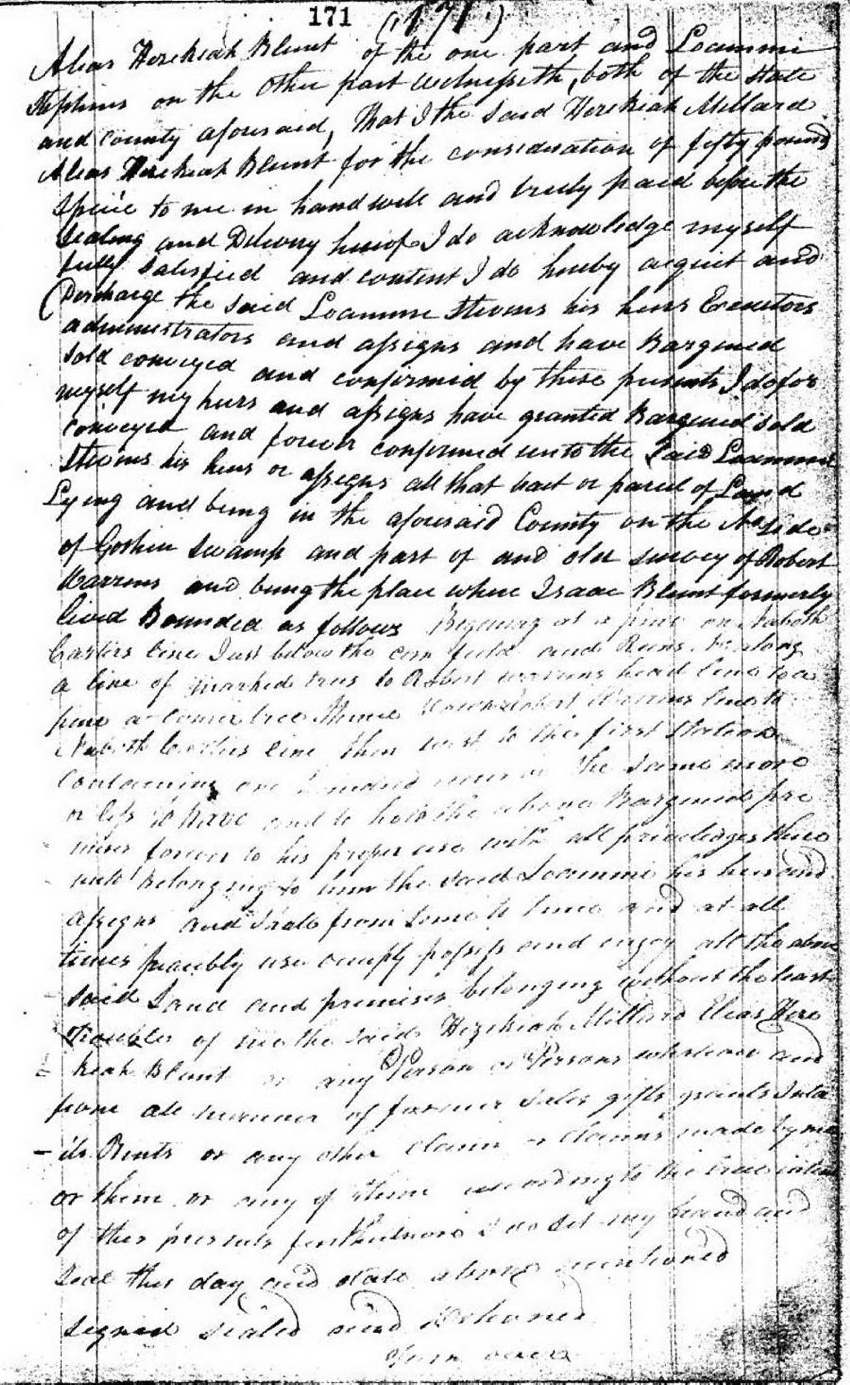 171 (171)
Alias Hezekiah Blunt of the one part and Loammi
Stephens on the other part Witnesseth, both of the State
and county aforesaid, That I the Said Hezekiah Millard
Alias Hezekiah Blunt for the consideration of fifty pound
Specie to me in hand well and truly paid before the
Sealing and Delivery hereof I do acknowledge myself
fully Satisfied and content I do hereby acquit and
Discharge the said Loammi Stevens his heirs Executors
administrators and assigns and have Bargened
Sold conveyed and confirmed by these presents I do for
myself my heirs and assigns have granted Bargened Sold
Conveyed and forever confirmed unto the Said Loammi
Stevens his heirs or assigns all that tract or parcel of Land
Lying and being in the aforesaid County on the No Side
of Goshen Swamp and part of and old survey of Robert
Warrens and being the place where Isaac Blunt formerly
lived Bounded as follows Begening at a pine on Naboth
line Just below the corn field and Runs along
a line of marked trees to Robert Warrens head line to a
pine a corner tree Thence Robert Warrens line to
Naboth line then west to the first Station
Containing one hundred the same more
or less To have and to hold the above Bargened pre
mises forever to his proper use with all priviledges there
unto Belonging to him the said Loammi his heirs and
assigns and Shall from time to time and at all
times peacibly use occupy possess and enjoy all the above
Said Land and premises belonging without the least
trouble of me the said Hezekiah Millard Elias Heze
kiah Blunt or any Person or Persons whatever and
from all manner of former Sales gifts grants
Rents or any other claim or claims made by me
or them or any of them according to the true intent
of these presents furthermore I do set my hand and
Seal this day and date above mentioned
Signed Sealed and Delivered